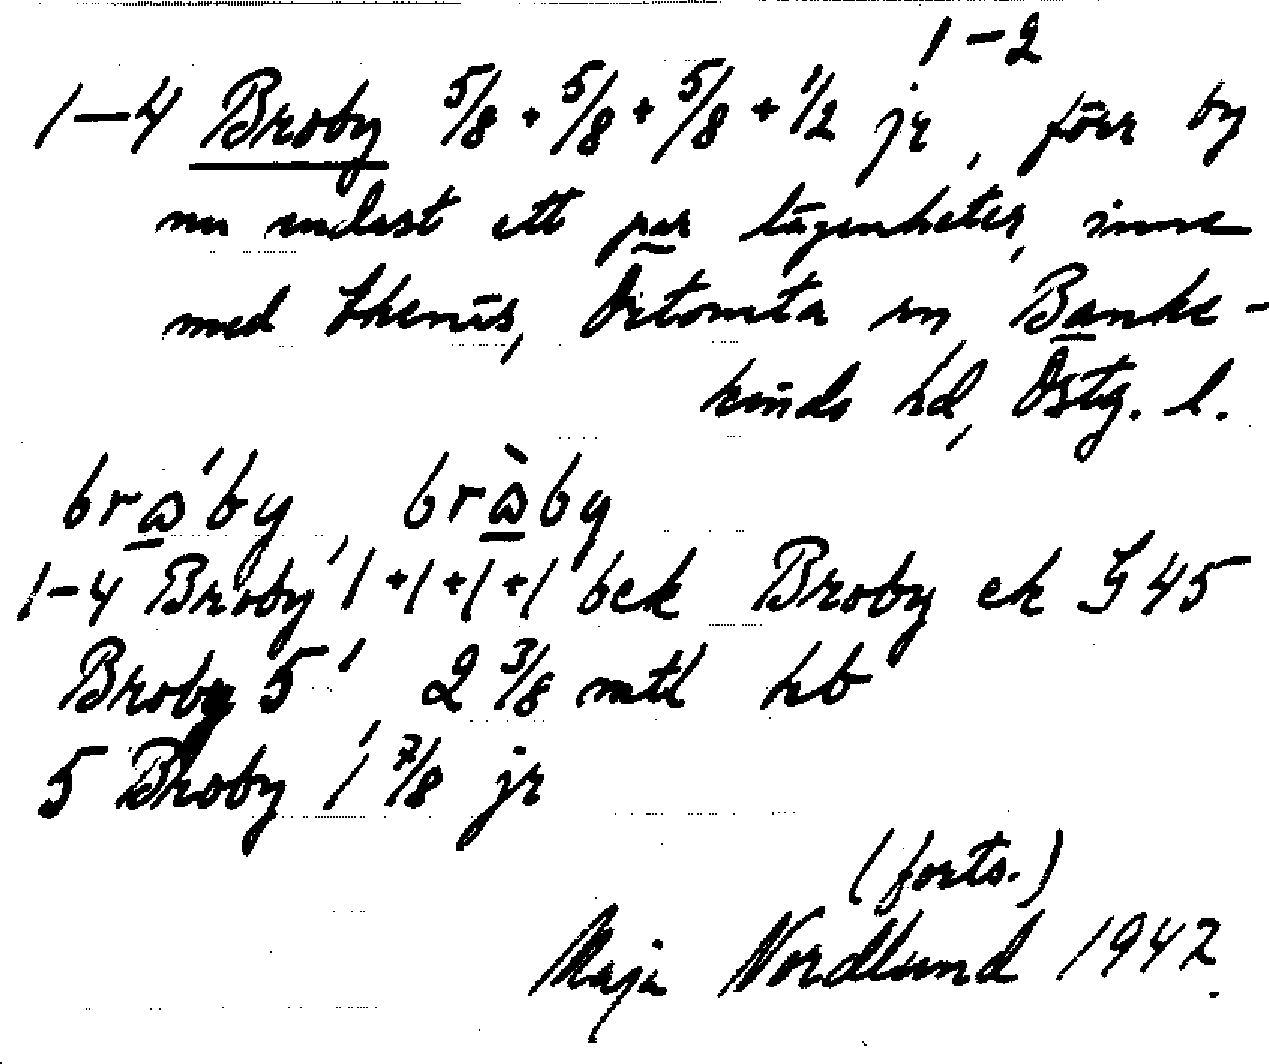 1-2
1-4 Broby 5/8 + 5/8 + 5/8 + 1/2 jr, förr by
nu endast ett par lägenheter, inne
med Ekenäs, Örtomta sn Banke-
kinds hd, Östg. l.
1-4 Broby 1+1+1+1 bek Broby ek G 45
Broby 5 2 3/8 mtl hb
5 Broby 1 7/8 jr
(forts.)
Maja Nordlund 1947.